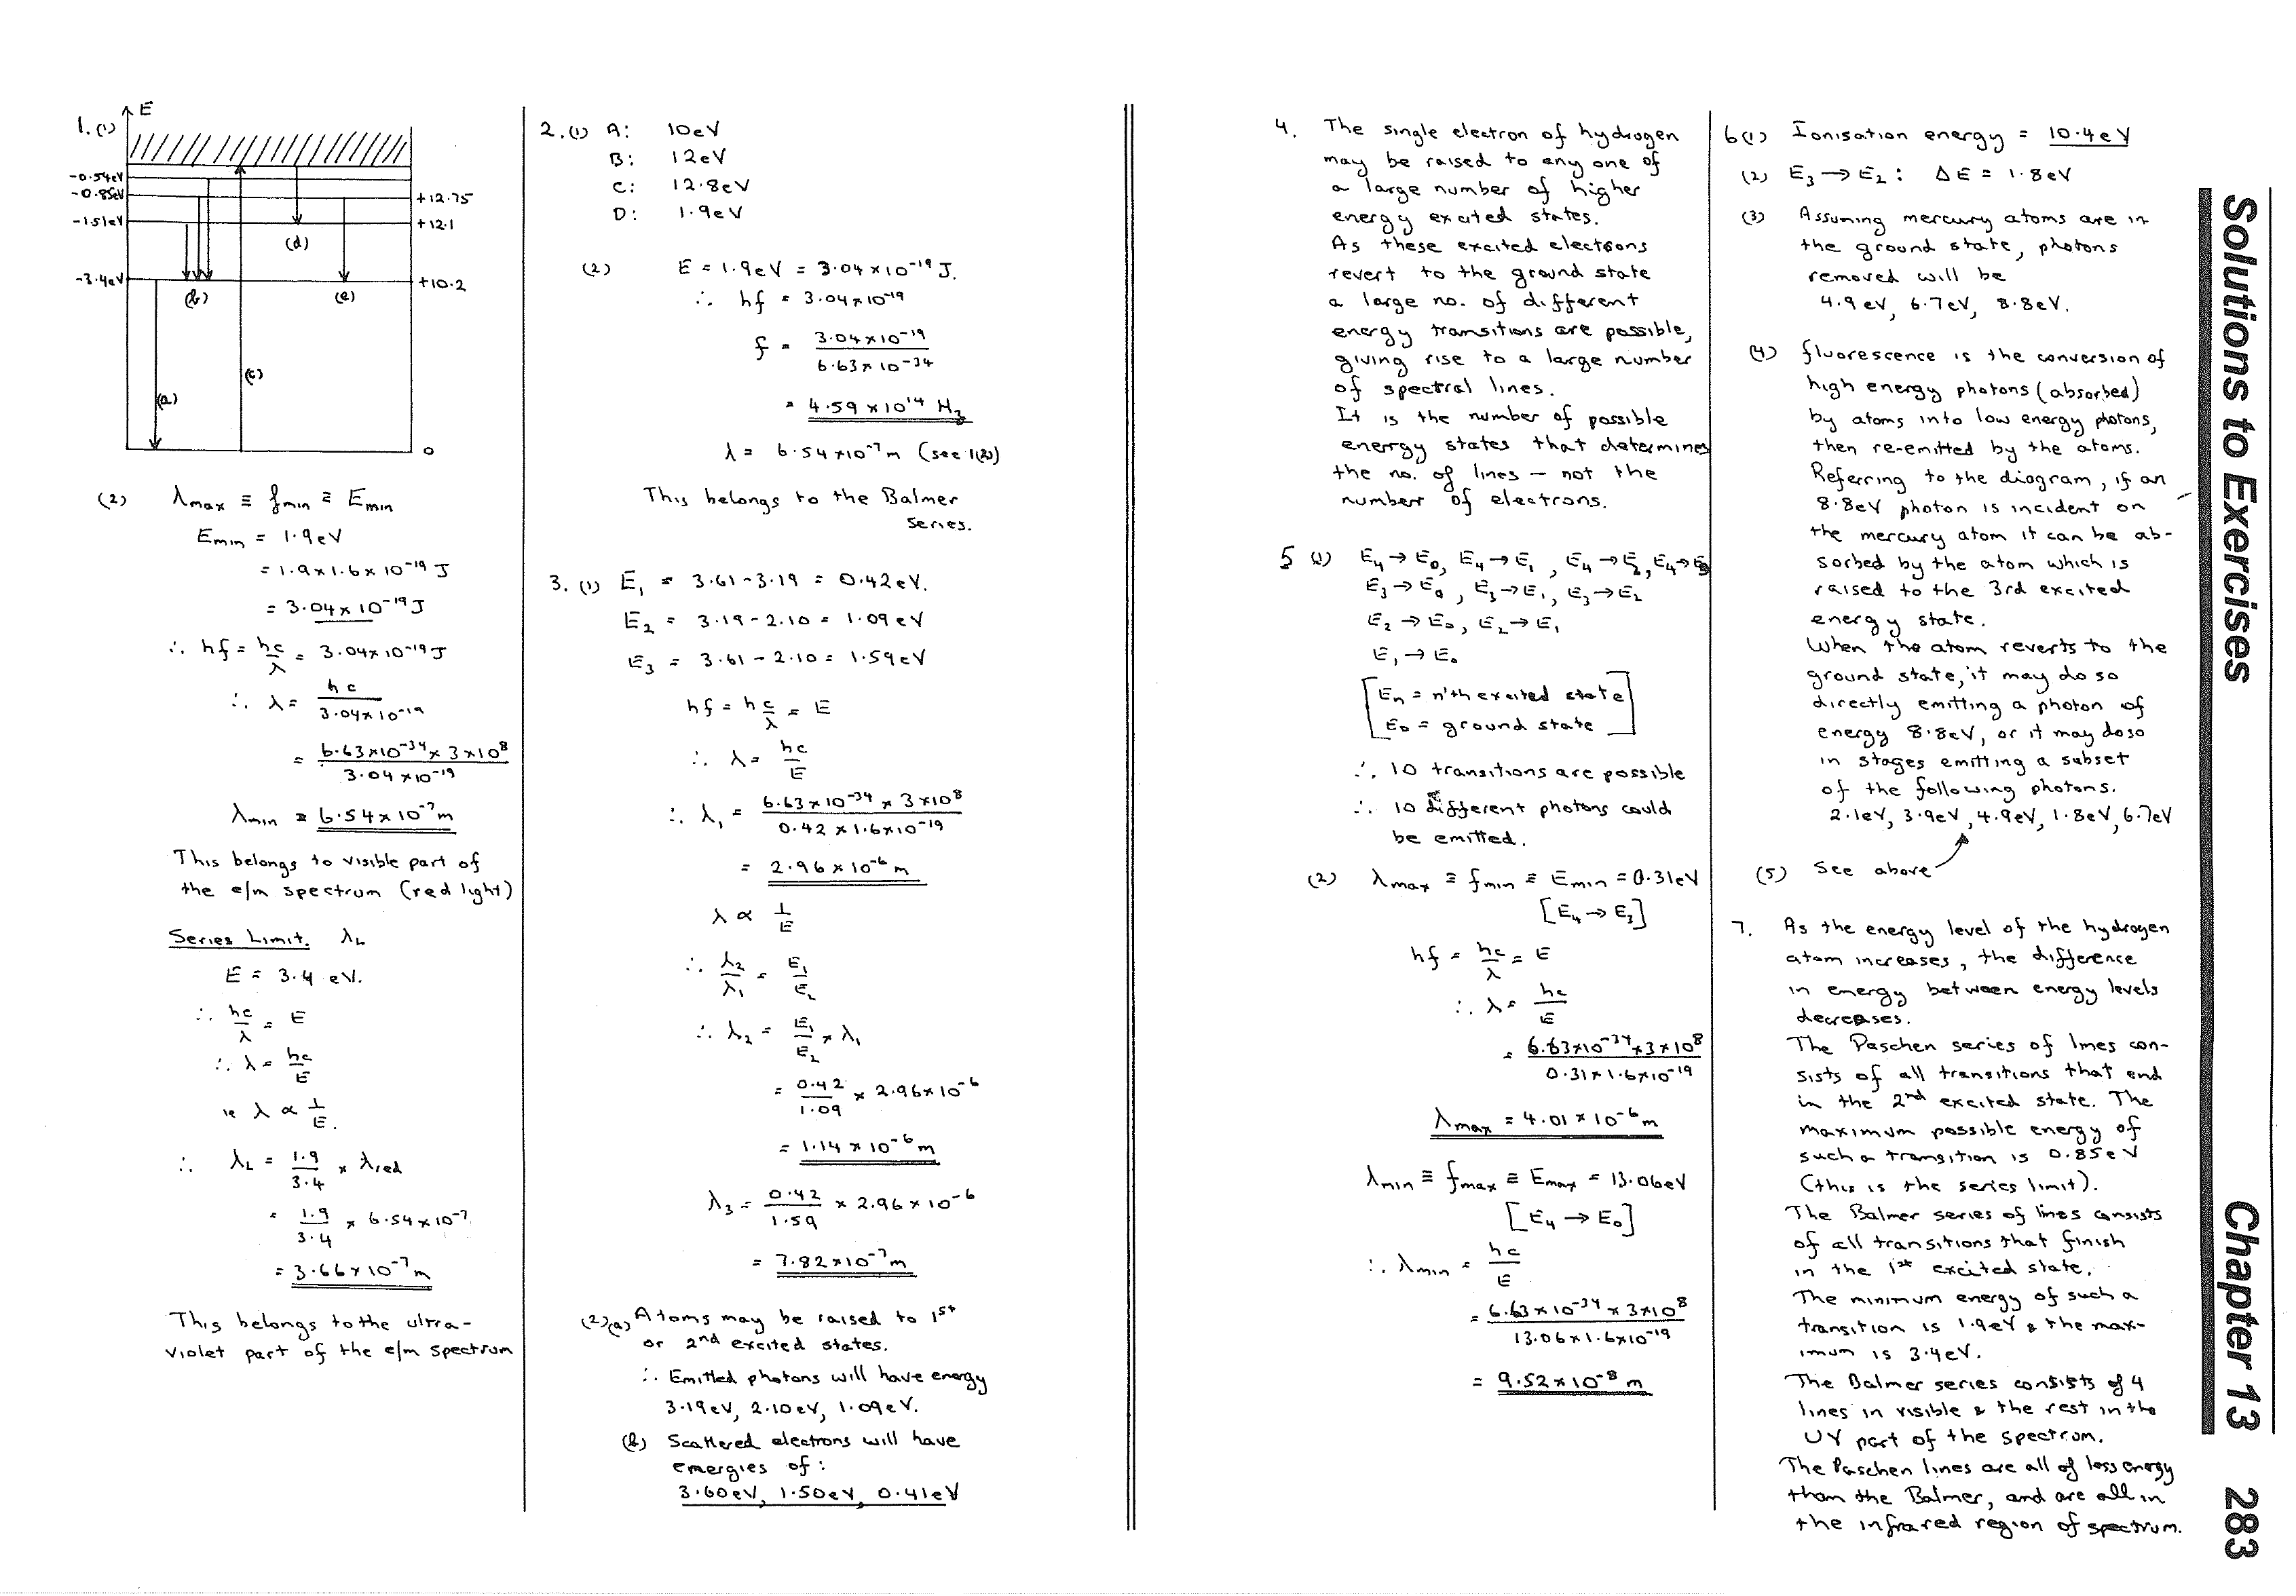 1.(1)
E
-0.54eV
-0.85eV
-1.51eV
-3.4eV
+12.75
+12.1
+10.2
0
(a)
(b)
(c)
(d)
(e)
(2) λmax ≡ fmin ≡ Emin
Emin = 1.9eV
= 1.9×1.6×10⁻¹⁹J
= 3.04×10⁻¹⁹J
∴ hf = hc/λ = 3.04×10⁻¹⁹J
∴ λ = hc / 3.04×10⁻¹⁹
= 6.63×10⁻³⁴×3×10⁸ / 3.04×10⁻¹⁹
λmin = 6.54×10⁻⁷m
This belongs to visible part of
the e/m spectrum (red light)
Series Limit. λL
E = 3.4 eV.
∴ hc/λ = E
∴ λ = hc/E
ie λ ∝ 1/E.
∴ λL = 1.9/3.4 × λred
= 1.9/3.4 × 6.54×10⁻⁷
= 3.66×10⁻⁷m
This belongs to the ultra-
violet part of the e/m spectrum
2.(1) A: 10eV
B: 12eV
C: 12.8eV
D: 1.9eV
(2) E = 1.9eV = 3.04×10⁻¹⁹J.
∴ hf = 3.04×10⁻¹⁹
f = 3.04×10⁻¹⁹ / 6.63×10⁻³⁴
= 4.59×10¹⁴ Hz
λ = 6.54×10⁻⁷m (see 1(2))
This belongs to the Balmer
series.
3.(1) E₁ = 3.61-3.19 = 0.42eV.
E₂ = 3.19-2.10 = 1.09eV
E₃ = 3.61-2.10 = 1.59eV
hf = hc/λ = E
∴ λ = hc/E
∴ λ₁ = 6.63×10⁻³⁴ × 3×10⁸ / 0.42×1.6×10⁻¹⁹
= 2.96×10⁻⁶m
λ ∝ 1/E
∴ λ₂/λ₁ = E₁/E₂
∴ λ₂ = E₁/E₂ × λ₁
= 0.42/1.09 × 2.96×10⁻⁶
= 1.14×10⁻⁶m
λ₃ = 0.42/1.59 × 2.96×10⁻⁶
= 7.82×10⁻⁷m
(2)(a) Atoms may be raised to 1st
or 2nd excited states.
∴ Emitted photons will have energy
3.19eV, 2.10eV, 1.09eV.
(b) Scattered electrons will have
emergies of:
3.60eV, 1.50eV, 0.41eV
4. The single electron of hydrogen
may be raised to any one of
a large number of higher
energy excited states.
As these excited electrons
revert to the ground state
a large no. of different
energy transitions are possible,
giving rise to a large number
of spectral lines.
It is the number of possible
energy states that determines
the no. of lines — not the
number of electrons.
5 (1) E₄→E₀, E₄→E₁, E₄→E₂, E₄→E₃
E₃→E₀, E₃→E₁, E₃→E₂
E₂→E₀, E₂→E₁
E₁→E₀
[En = n'th excited state
E₀ = ground state]
∴ 10 transitions are possible
∴ 10 different photons could
be emitted.
(2) λmax ≡ fmin ≡ Emin = 0.31eV
[E₄→E₃]
hf = hc/λ = E
∴ λ = hc/E
= 6.63×10⁻³⁴×3×10⁸ / 0.31×1.6×10⁻¹⁹
λmax = 4.01×10⁻⁶m
λmin ≡ fmax ≡ Emax = 13.06eV
[E₄→E₀]
∴ λmin = hc/E
= 6.63×10⁻³⁴×3×10⁸ / 13.06×1.6×10⁻¹⁹
= 9.52×10⁻⁸m
6(1) Ionisation energy = 10.4eV
(2) E₃→E₂: ΔE = 1.8eV
(3) Assuming mercury atoms are in
the ground state, photons
removed will be
4.9eV, 6.7eV, 8.8eV.
(4) fluorescence is the conversion of
high energy photons (absorbed)
by atoms into low energy photons,
then re-emitted by the atoms.
Referring to the diagram, if an
8.8eV photon is incident on
the mercury atom it can be ab-
sorbed by the atom which is
raised to the 3rd excited
energy state.
When the atom reverts to the
ground state, it may do so
directly emitting a photon of
energy 8.8eV, or it may do so
in stages emitting a subset
of the following photons.
2.1eV, 3.9eV, 4.9eV, 1.8eV, 6.7eV
(5) See above
7. As the energy level of the hydrogen
atom increases, the difference
in energy between energy levels
decreases.
The Paschen series of lines con-
sists of all transitions that end
in the 2nd excited state. The
maximum possible energy of
such a transition is 0.85eV
(this is the series limit).
The Balmer series of lines consists
of all transitions that finish
in the 1st excited state.
The minimum energy of such a
transition is 1.9eV & the max-
imum is 3.4eV.
The Balmer series consists of 4
lines in visible & the rest in the
UV part of the spectrum.
The Paschen lines are all of less energy
than the Balmer, and are all in
the infrared region of spectrum.
Solutions to Exercises
Chapter 13
283